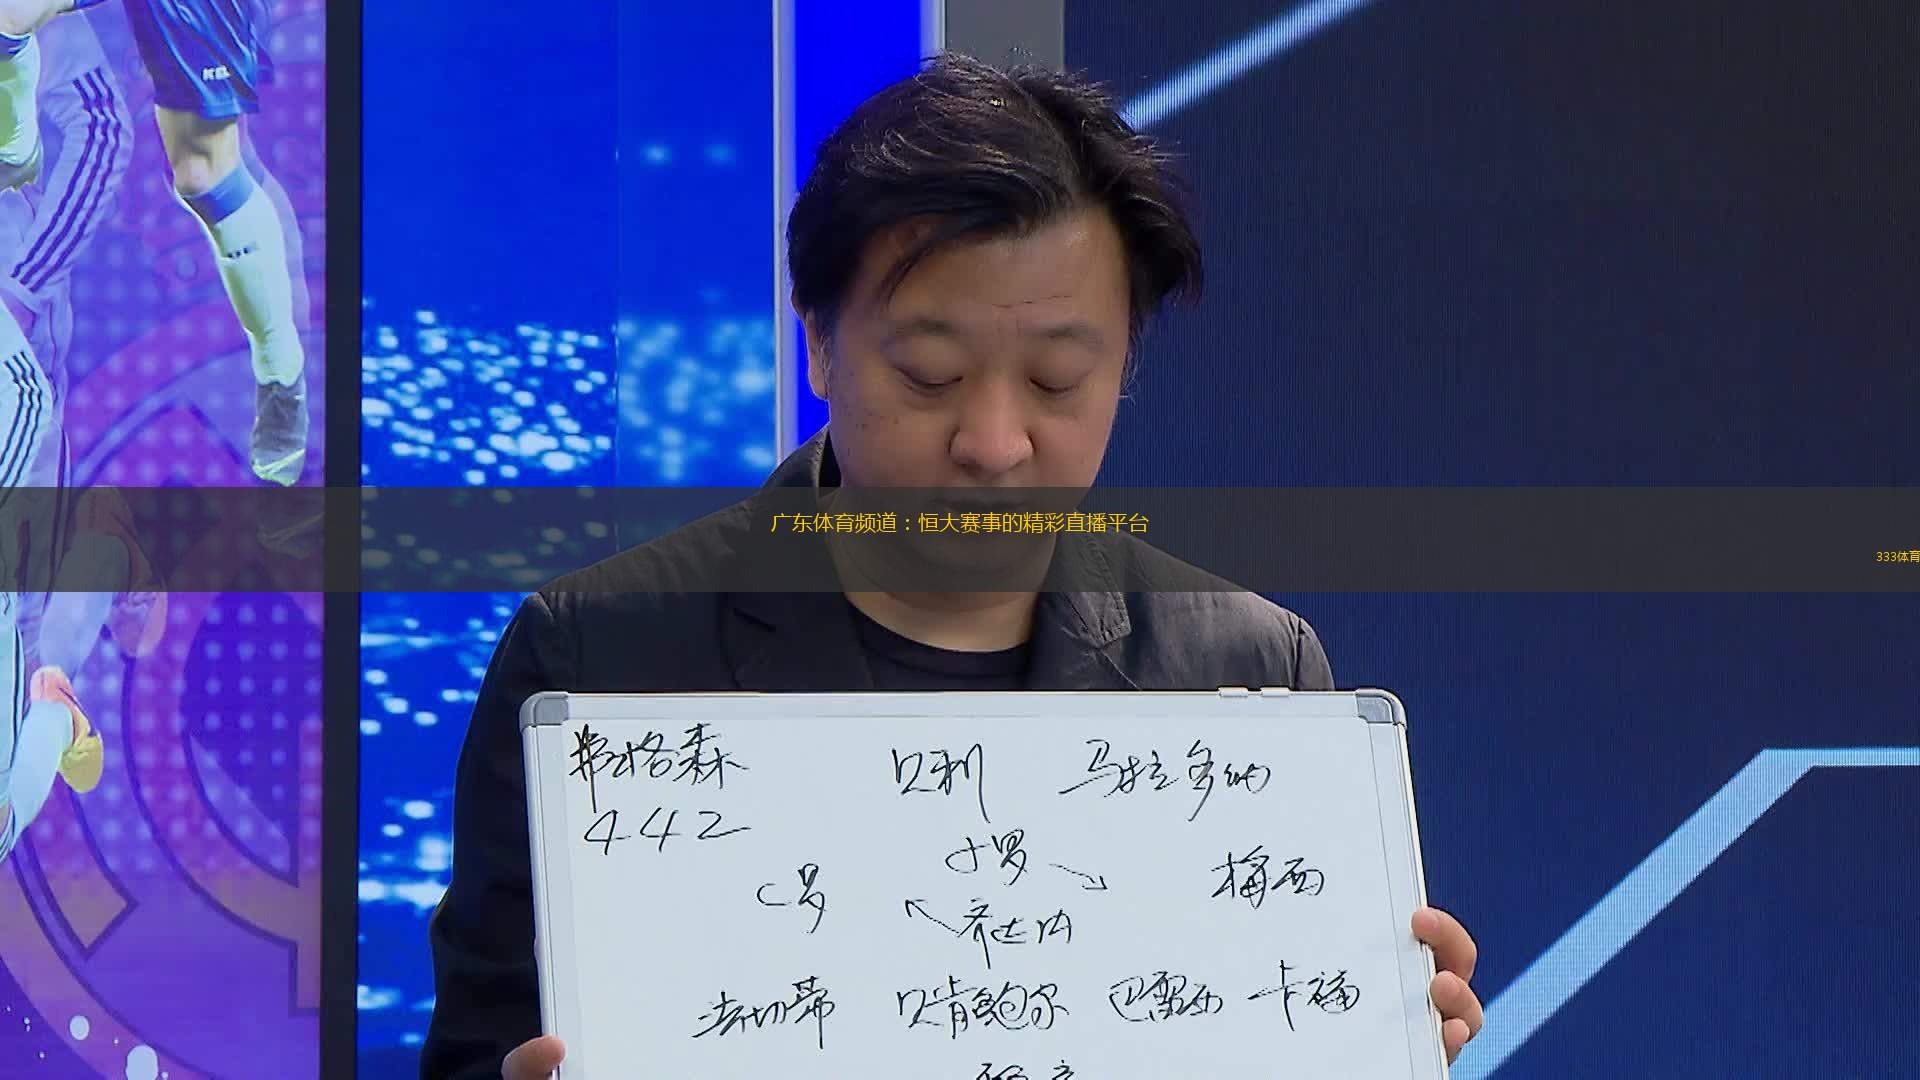 广东体育频道：恒大赛事的精彩直播平台
333体育
弗格森 贝利 马拉多纳
442
小罗
C罗 梅西
齐达内
法切蒂 贝肯鲍尔 巴雷西 卡福